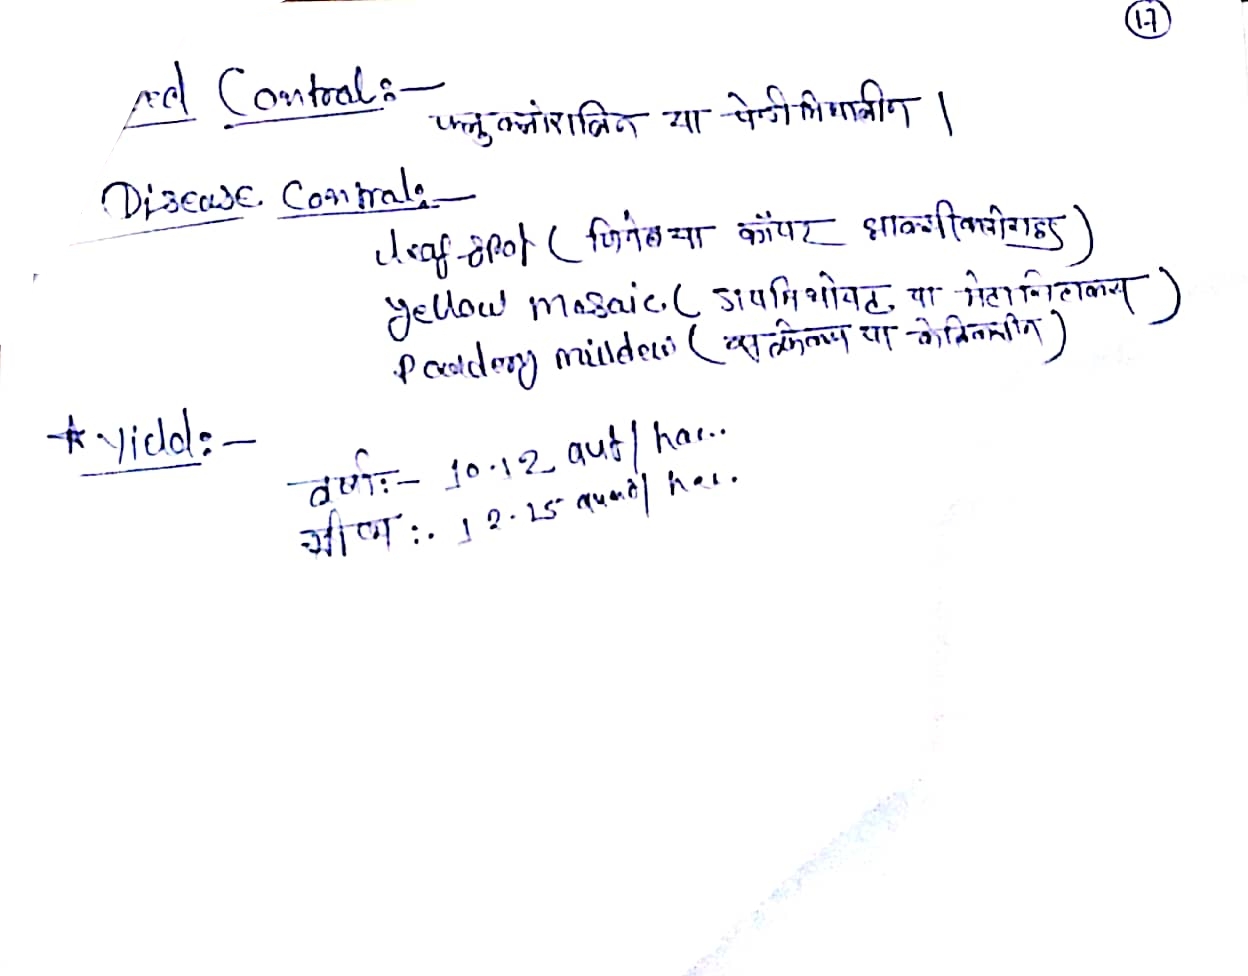 17
Control:-
फ्लुक्लोरालिन या पेन्डीमिथालीन ।
Disease Control:-
Leaf spot ( जिनेब या कॉपर आक्सीक्लोराइड )
yellow mosaic ( डायमिथोयट या मेटासिस्टाक्स )
Powdery mildew ( या )
* Yield:-
वर्षा:- 10.12 /hac..
ग्रीष्म:. 12.15 /hac.